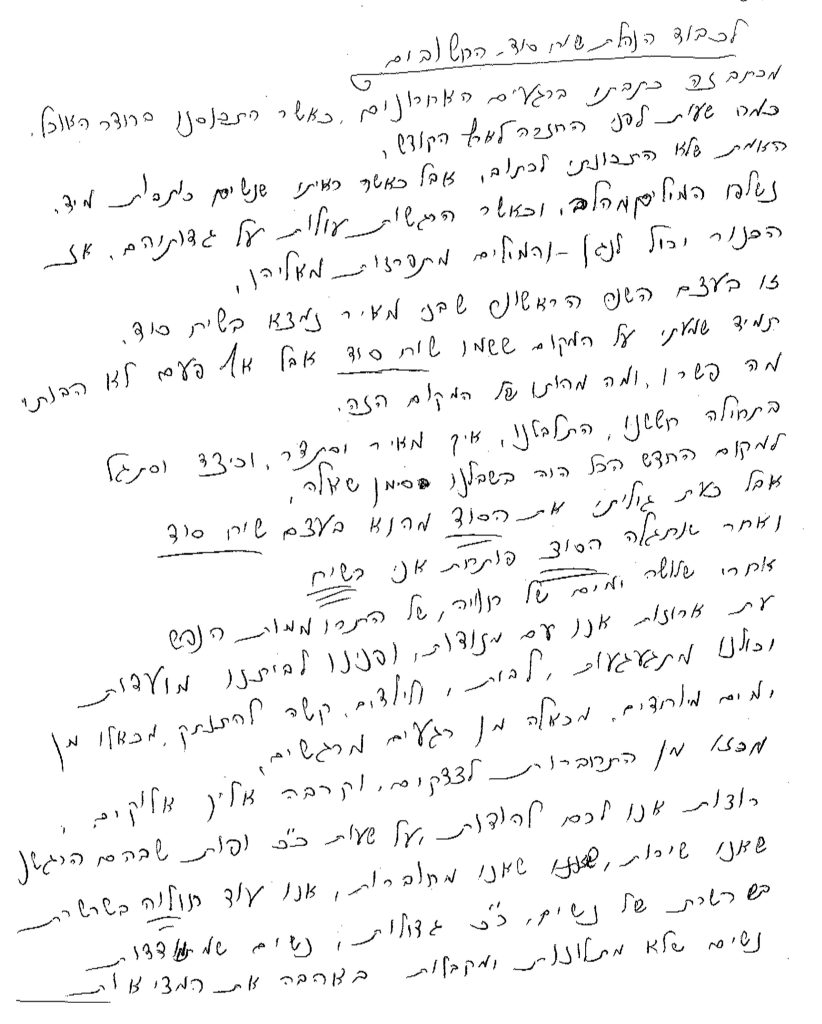 לכבוד הנהלת שיח סוד. החשובים
מכתב זה כתבתי ברגעים האחרונים, כאשר התבוססנו בחדר האוכל.
כמה שעות לפני החזרה לארץ הקודש,
האמת שלא התכוונתי לכתוב, אבל כאשר ראיתי שנשים כותבות מיד,
נשלפו המילים מהלב, וכאשר הרגשות עולות על גדותיהם, אז
הכנור יכול לנגן – והמילים מתפרזות מאליהן,
זו בעצם השנה הראשונה שבני מאיר נמצא בשיח סוד,
תמיד שמעתי על המקום ששמו שיח סוד אבל אף פעם לא הבנתי
מה פשרו, ומה מהותו של המקום הזה.
בתחילה חששנו, התלבטנו, איך מאיר יסתדר, וכיצד יסתגל
למקום החדש הכל היה בשבלנו סימן שאלה,
אבל כעת גיליתי את הסוד מהוא בעצם שיח סוד
ואחר שנתגלה הסוד פותחת אני בשיח
אחרי שלושה ימים של חוויה, של התרוממות הנפש
עת אורזות אנו עם מזוודות, ופנינו לביתנו מועדות
וכולנו מתגעגעות, לבית, לילדים, קשה להתנתק, מכאלו מן
ימים מיוחדים, מכאלה מן רגעים מרגשים,
מכזו מן התחברות לצדקים, וקרבה אליך אלוקים,
רוצות אנו לכם להודות, על שעות כ"כ יפות שבהם הרגשנו
שאנו שייכות, שאנו מחוברות, אנו עוד חוליה בשרשרת
בשרשרת של נשים, כ"כ גדולות, נשים שמתמודדות
נשים שלא מתלוננות ומקבלות באהבה את המציאות